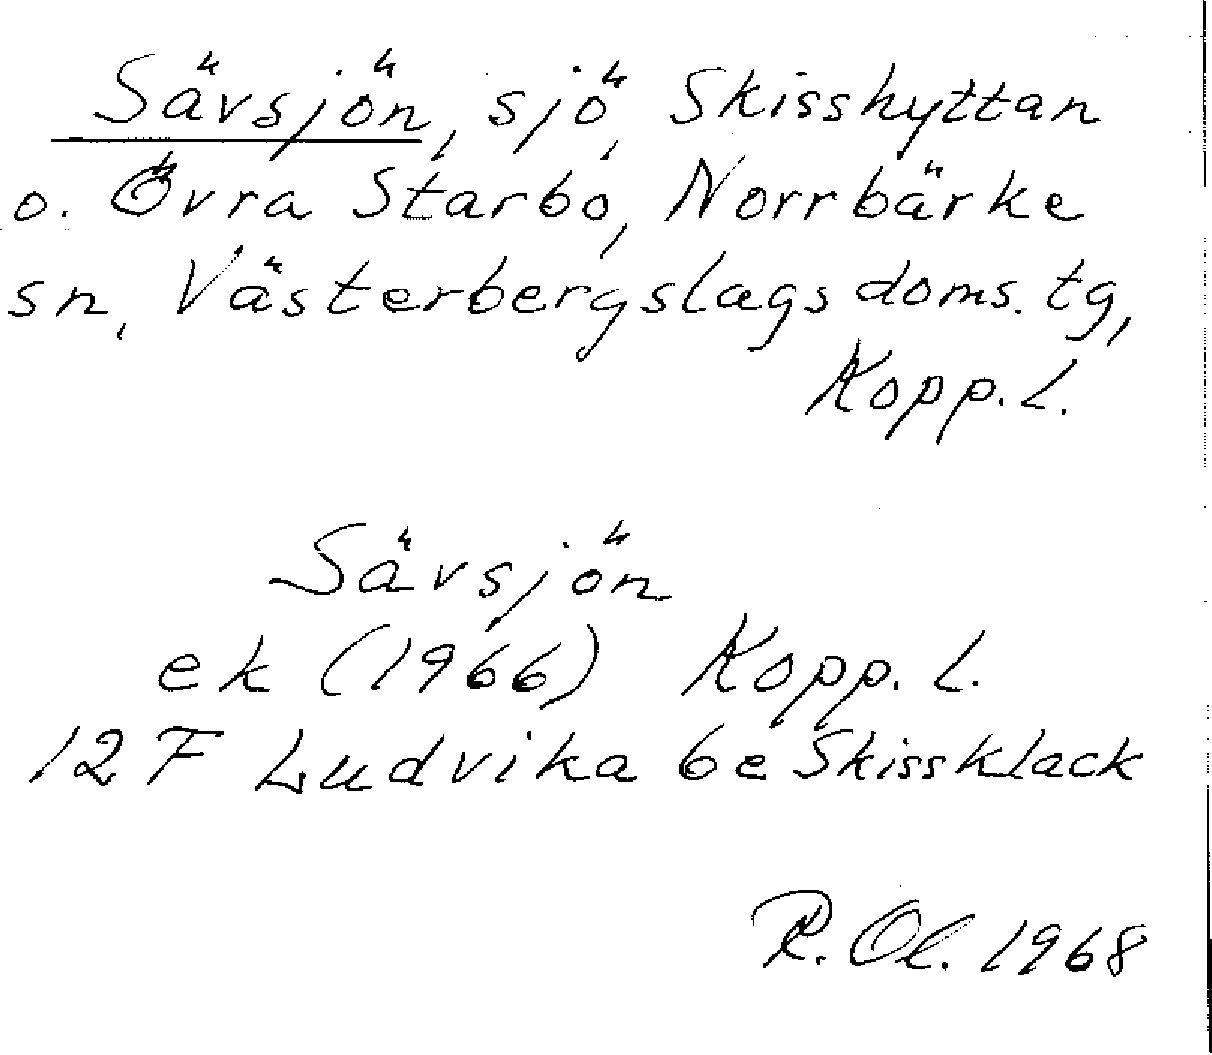 Sävsjön, sjö, Skisshyttan
o. Övra Starbo, Norrbärke
sn, Västerbergslags doms. tg,
Kopp. l.
Sävsjön
ek (1966) Kopp. l.
12 F Ludvika 6e Skissklack
R. Ol. 1968